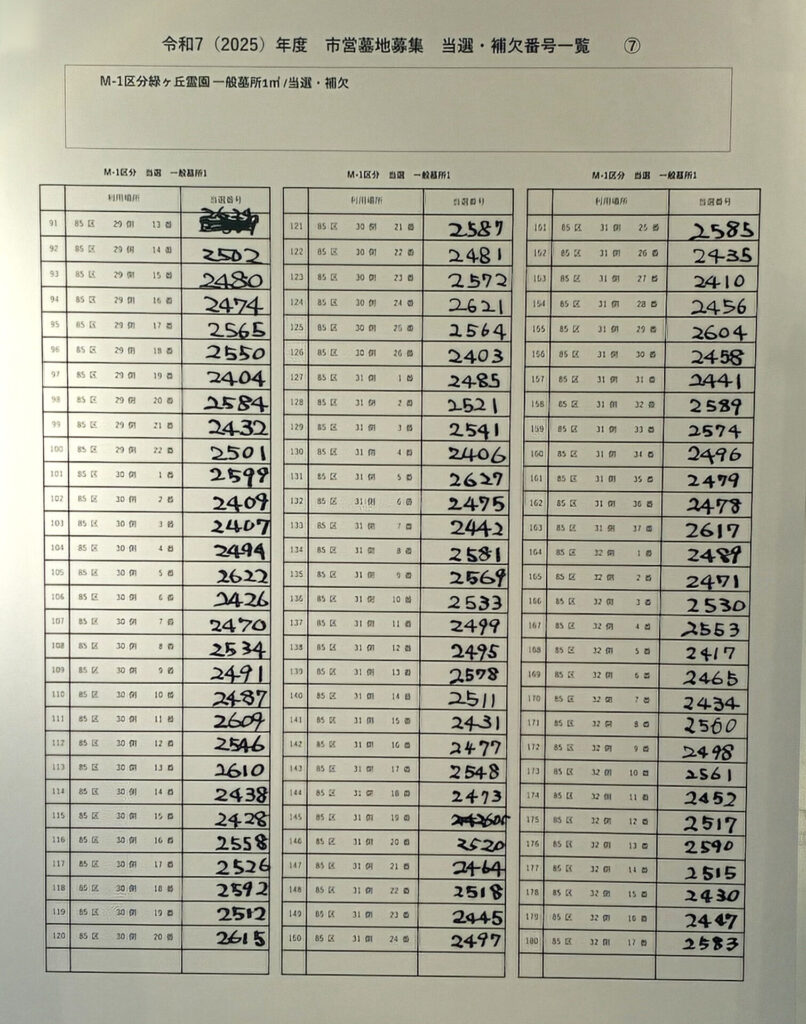 令和7（2025）年度　市営墓地募集　当選・補欠番号一覧　⑦
M-1区分緑ヶ丘霊園 一般墓所1㎡/当選・補欠
M-1区分　当選　一般墓所1
利用場所 当選番号
91 85 区 29 側 13 番
92 85 区 29 側 14 番 2502
93 85 区 29 側 15 番 2480
94 85 区 29 側 16 番 2474
95 85 区 29 側 17 番 2565
96 85 区 29 側 18 番 2550
97 85 区 29 側 19 番 2404
98 85 区 29 側 20 番 2584
99 85 区 29 側 21 番 2432
100 85 区 29 側 22 番 2501
101 85 区 30 側 1 番 2599
102 85 区 30 側 2 番 2409
103 85 区 30 側 3 番 2407
104 85 区 30 側 4 番 2494
105 85 区 30 側 5 番 2622
106 85 区 30 側 6 番 2426
107 85 区 30 側 7 番 2470
108 85 区 30 側 8 番 2534
109 85 区 30 側 9 番 2491
110 85 区 30 側 10 番 2487
111 85 区 30 側 11 番 2609
112 85 区 30 側 12 番 2546
113 85 区 30 側 13 番 2610
114 85 区 30 側 14 番 2438
115 85 区 30 側 15 番 2428
116 85 区 30 側 16 番 2558
117 85 区 30 側 17 番 2526
118 85 区 30 側 18 番 2592
119 85 区 30 側 19 番 2512
120 85 区 30 側 20 番 2615
M-1区分　当選　一般墓所1
利用場所 当選番号
121 85 区 30 側 21 番 2587
122 85 区 30 側 22 番 2481
123 85 区 30 側 23 番 2572
124 85 区 30 側 24 番 2621
125 85 区 30 側 25 番 2564
126 85 区 30 側 26 番 2403
127 85 区 31 側 1 番 2485
128 85 区 31 側 2 番 2521
129 85 区 31 側 3 番 2541
130 85 区 31 側 4 番 2406
131 85 区 31 側 5 番 2627
132 85 区 31 側 6 番 2475
133 85 区 31 側 7 番 2442
134 85 区 31 側 8 番 2581
135 85 区 31 側 9 番 2569
136 85 区 31 側 10 番 2533
137 85 区 31 側 11 番 2499
138 85 区 31 側 12 番 2495
139 85 区 31 側 13 番 2578
140 85 区 31 側 14 番 2511
141 85 区 31 側 15 番 2431
142 85 区 31 側 16 番 2477
143 85 区 31 側 17 番 2548
144 85 区 31 側 18 番 2473
145 85 区 31 側 19 番
146 85 区 31 側 20 番 2520
147 85 区 31 側 21 番 2464
148 85 区 31 側 22 番 2518
149 85 区 31 側 23 番 2445
150 85 区 31 側 24 番 2497
M-1区分　当選　一般墓所1
利用場所 当選番号
151 85 区 31 側 25 番 2585
152 85 区 31 側 26 番 2435
153 85 区 31 側 27 番 2410
154 85 区 31 側 28 番 2456
155 85 区 31 側 29 番 2604
156 85 区 31 側 30 番 2458
157 85 区 31 側 31 番 2441
158 85 区 31 側 32 番 2589
159 85 区 31 側 33 番 2574
160 85 区 31 側 34 番 2496
161 85 区 31 側 35 番 2479
162 85 区 31 側 36 番 2478
163 85 区 31 側 37 番 2617
164 85 区 32 側 1 番 2489
165 85 区 32 側 2 番 2471
166 85 区 32 側 3 番 2530
167 85 区 32 側 4 番 2553
168 85 区 32 側 5 番 2417
169 85 区 32 側 6 番 2465
170 85 区 32 側 7 番 2434
171 85 区 32 側 8 番 2560
172 85 区 32 側 9 番 2498
173 85 区 32 側 10 番 2561
174 85 区 32 側 11 番 2452
175 85 区 32 側 12 番 2517
176 85 区 32 側 13 番 2590
177 85 区 32 側 14 番 2515
178 85 区 32 側 15 番 2430
179 85 区 32 側 16 番 2447
180 85 区 32 側 17 番 2583